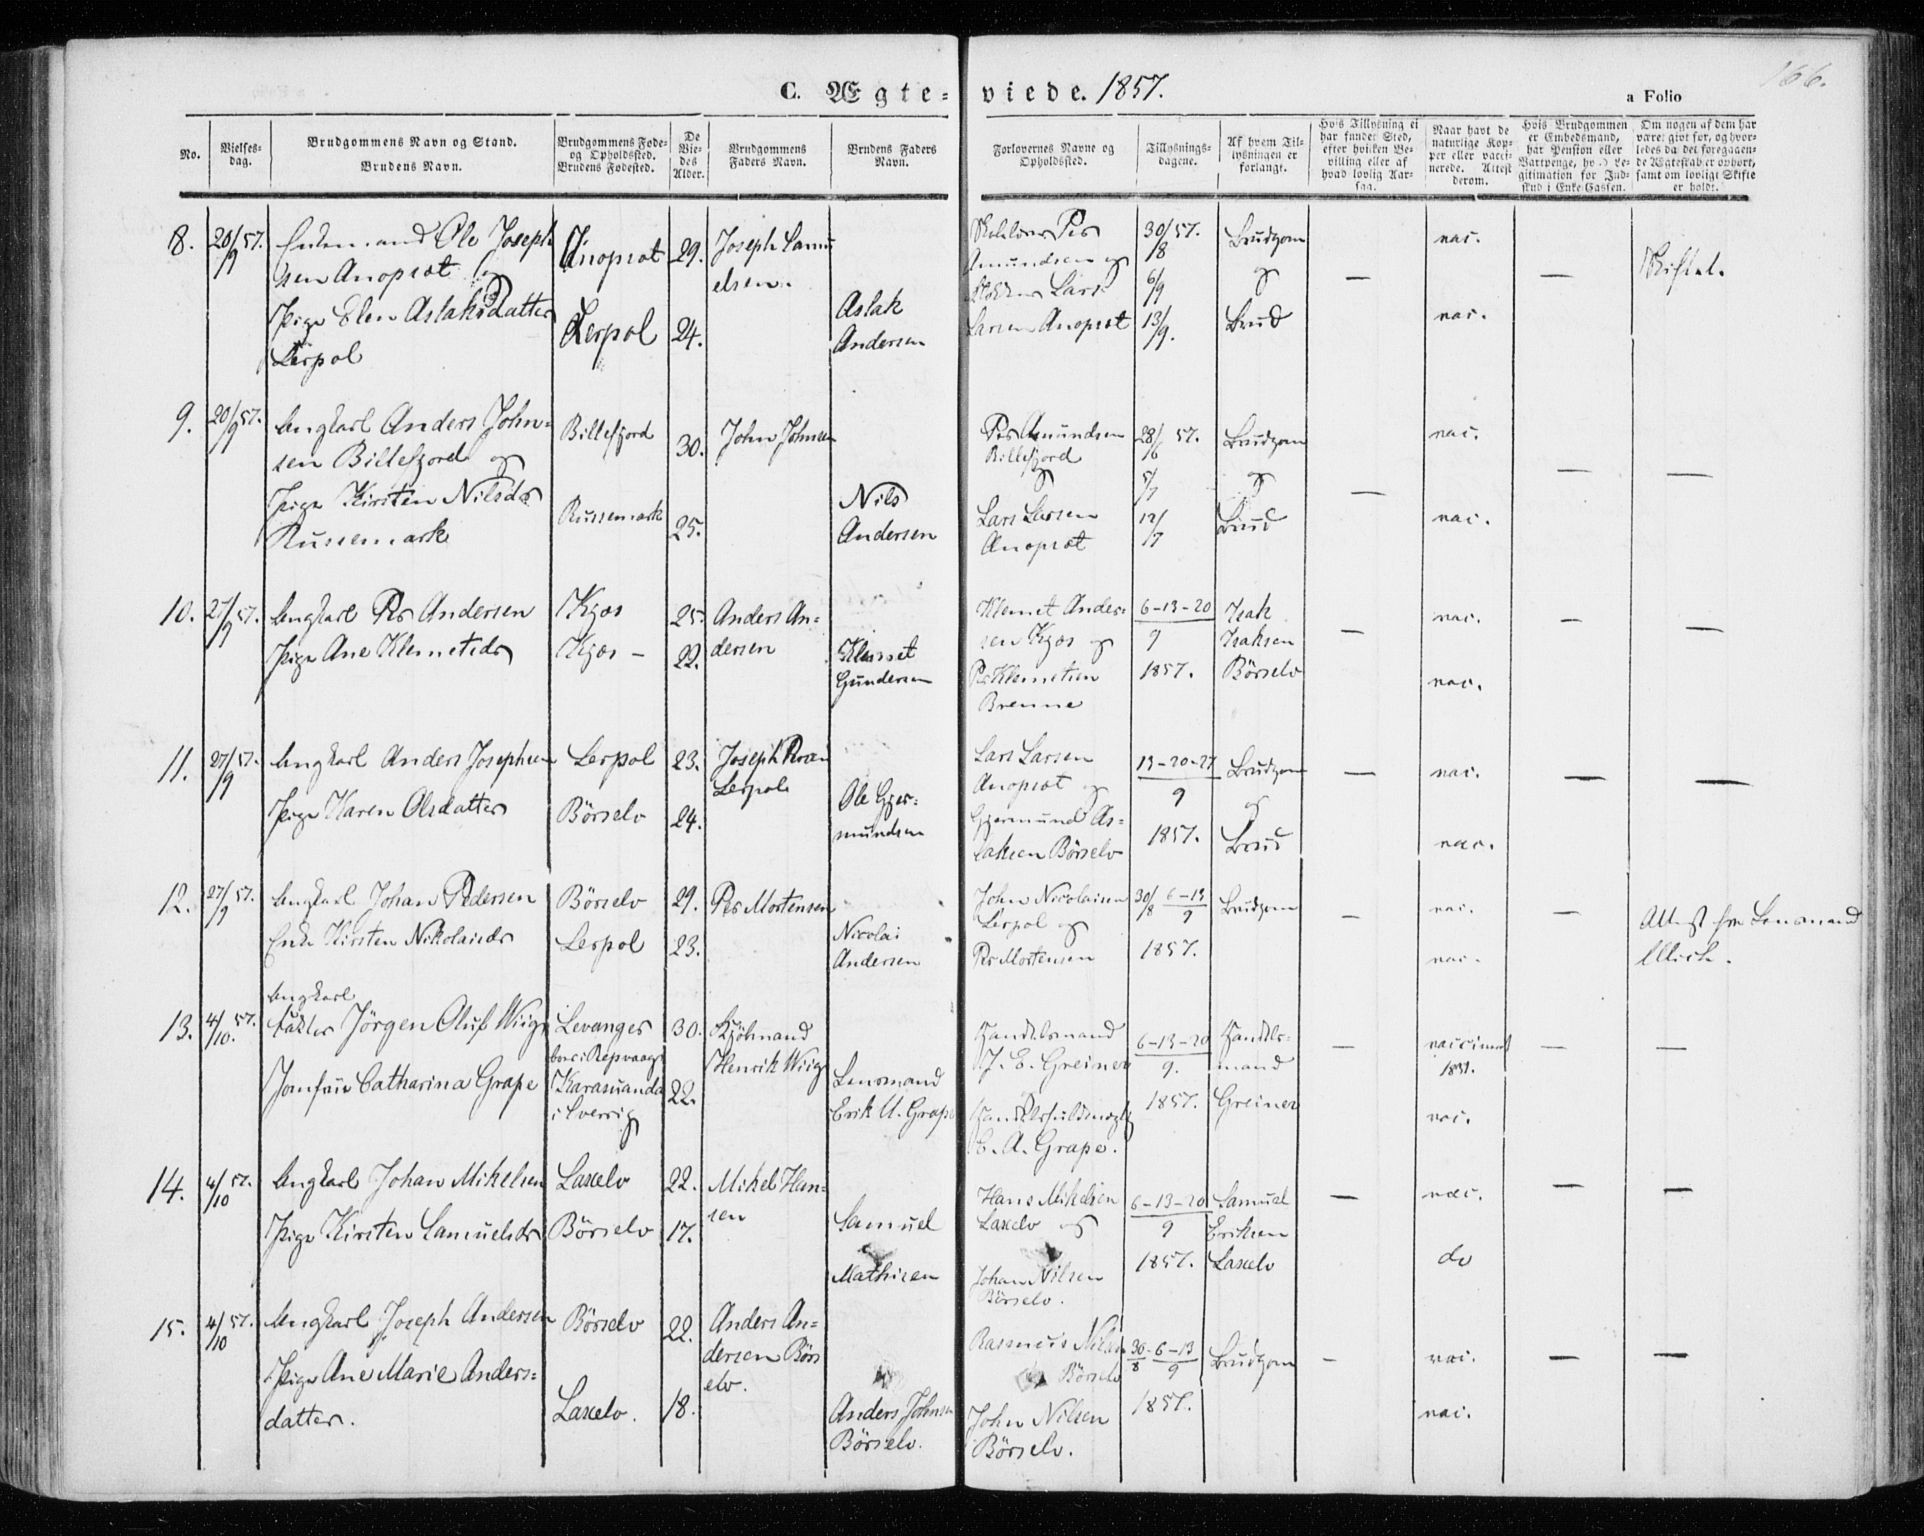 C. Ægteviede. 1857.
166.
a Folio
No.
Vielses-
dag.
Brudgommens Navn og Stand.
Brudens Navn.
Brudgommens Føde-
og Opholdssted.
Brudens Fødested.
De
Vie-
des
Alder.
Brudgommens
Faders Navn.
Brudens Faders
Navn.
Forlovernes Navne og
Opholdssted.
Tillysnings-
dagene.
Af hvem Til-
lysningen er
forlangt.
Hvis Tillysning ei
har fundet Sted,
efter hvilken Be-
villing eller af
hvad lovlig Aar-
sag.
Naar havt de
naturlige Kop-
per eller vacci-
nerede. Attest
derom.
Hvis Brudgommen
er Embedsmand,
har Pension eller
Vartpenge, hv... Le-
gitimation for Ind-
skud i Enke-Cassen.
Om nogen af dem har
været givt før, og hvor-
ledes da det foregaaen-
de Ægteskab er ophørt,
samt om lovligt Skifte
er holdt.
8. 20/9 57. Enkemand Ole Joseph
sen Anopsæt og
Pige Elen Aslaksdatter
Lerpol
Anopsæt
Lerpol
29.
24.
Joseph Samu
elsen.
Aslak
Andersen
Per
Amundsen og
Lars
Larsen Anopsæt
30/8 57.
6/9
13/9.
Brudgom
og
Brud
—
vac.
vac.
—
Skiftet.
9. 20/9 57. Ungkarl Anders John-
sen Billefjord og
Pige Kirsten Nilsdr
Russemark
Billefjord
Russemark
30.
25.
John Johnsen
Nils
Andersen
Per Amundsen
Billefjord
og
Lars Larsen
Anopsæt
28/6 57.
5/7
12/7
Brudgom
og
Brud
—
vac.
vac.
—
—
10. 27/9 57. Ungkarl Per Andersen
Pige Ane Klemetsdr
Kjæs
Kjæs –
25.
22.
Anders An-
dersen
Klemet
Gundersen
Klemet Ander-
sen Kjæs og
Per Klemetsen
Brenne
6–13–20
9
1857.
Isak
Isaksen
Börselv
—
vac.
vac.
—
—
11. 27/9 57. Ungkarl Anders Josephsen
Pige Karen Olsdatter
Lerpol
Börselv
23.
24.
Joseph
Lerpol
Ole Gjer-
mundsen
Lars Larsen
Anopsæt og
Gjermund As-
laksen Börselv
13–20–27
9
1857.
Brudgom
og
Brud
—
vac.
vac.
—
—
12. 27/9 57. Ungkarl Johan Pedersen
Enke Kirsten Nikolaisdr
Börselv
Lerpol
29.
23.
Per Mortensen
Nicolai
Andersen
John Nicolaisen
Lerpol og
Per Mortensen
30/8 6–13
9
1857.
Brudgom
—
vac.
vac.
—
Attest fra Lensmand
Ulich.
13. 4/10. 57. Ungkarl
Faktor Jörgen Oluf Wiig
Jomfru Catharina Grape
Levanger
boer i Repvaag
Karasuanda
i Sverrig
30.
22.
Henrik Wiig
Lensmand
Erik U. Grape
Handelsmand
J. E. Greiner
E. A. Grape.
6–13–20
9.
1857.
Handels-
mand
Greiner
—
vaccineret
vac.
—
—
14. 4/10 57. Ungkarl Johan Mikelsen
Pige Kirsten Samuelsdr
Laxelv
Börselv
22.
17.
Mikel Han-
sen
Samuel
Mathisen
Hans Mikelsen
Laxelv og
Johan Nilsen
Börselv.
6–13–20
9
1857.
Samuel
Eriksen
Laxelv
—
vac.
do
—
—
15. 4/10 57. Ungkarl Joseph Andersen
Pige Ane Marie Anders-
datter.
Börselv
Laxelv.
22.
18.
Anders An-
dersen Börs
elv.
Anders Johnsen
Börselv.
Rasmus Nilsen
Börselv
John Nilsen
Börselv.
30/8 - 6–13
9
1857.
Brudgom
–
vac.
vac.
—
—